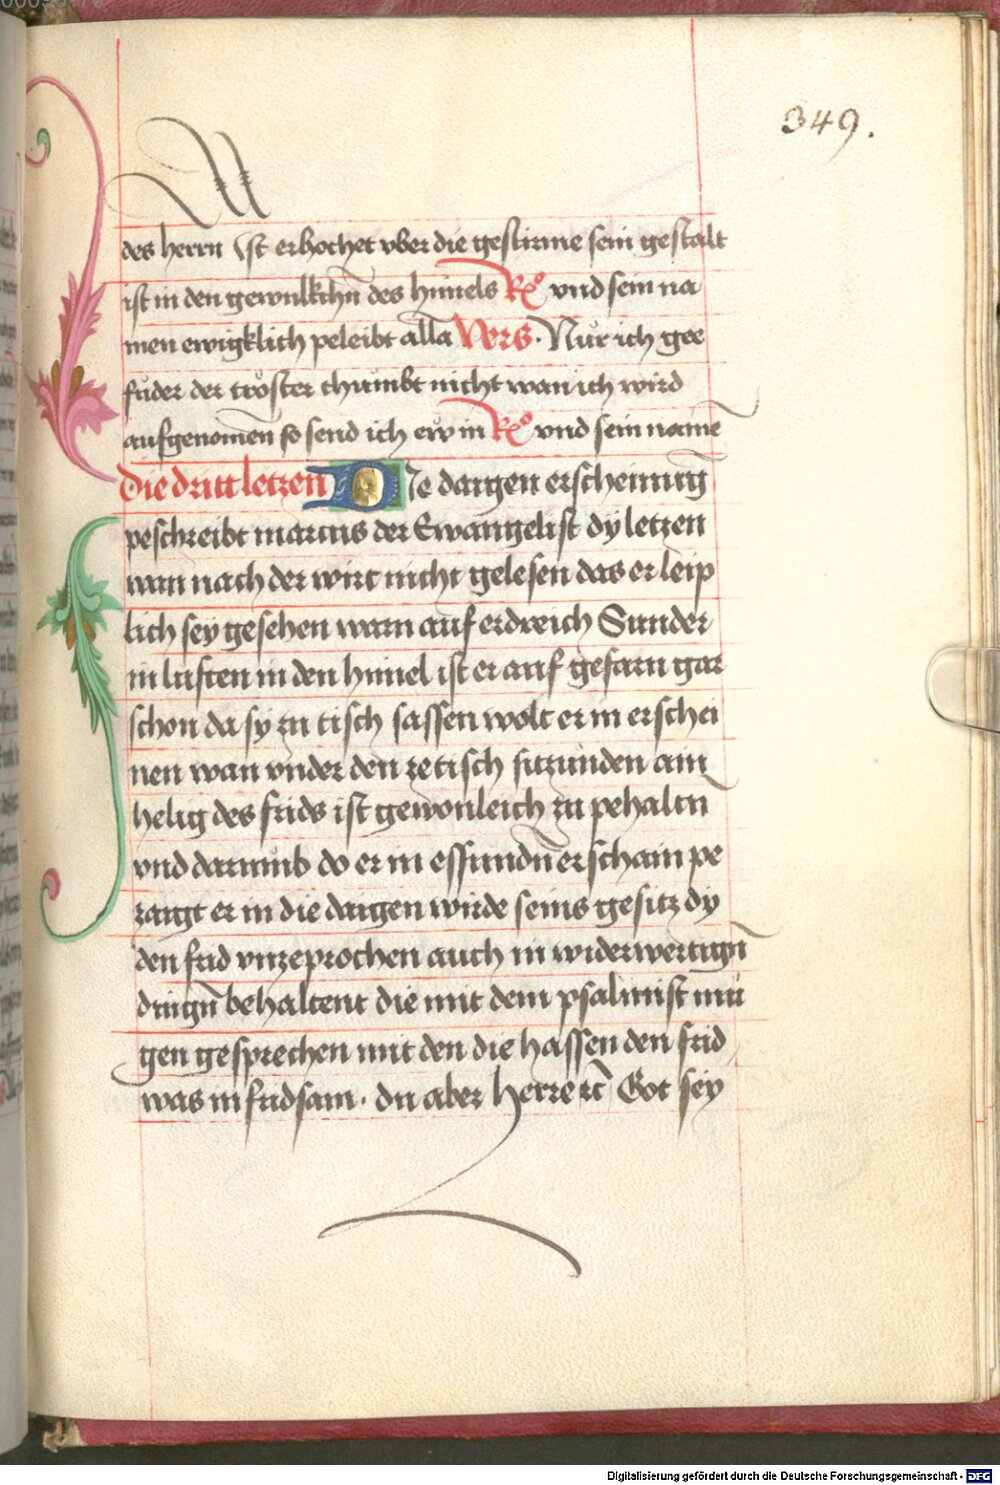 349.
des herrn Ist erhochet vber die gestirnne sein gestalt
ist in den gewulkchñ des himels Rx̊ vnd sein na
men ewigklich peleibt alla Vers. Nur ich gee
fuder der troster chumbt nicht wan ich wird
aufgenomen so send ich ew in Rx̊ vnd sein name
Die dritt letzen DIe daigen erscheinung
peschreibt marcus der Ewangelist dy letzen
wan nach der wirt nicht gelesen das er leip
lich sey gesehen warn auf erdreich Sunder
in lufften in den himel ist er auf gefarn gar
schon da sy zu tisch sassen wolt er in erschei
nen wan vnder den ze tisch sitzunden ain
helig des frids ist gewonleich zu pehaltñ
vnd darumb do er in essundñ erschain pe
zaigt er in die daigen wirde seins gesitz dy
den frid vnzeprochen auch in widerwertigñ
dingñ behaltent die mit dem psalmist mu
gen gesprechen mit den die hassen den frid
was in fridsam. du aber herre rc̃ Got sey
Digitalisierung gefördert durch die Deutsche Forschungsgemeinschaft - DFG